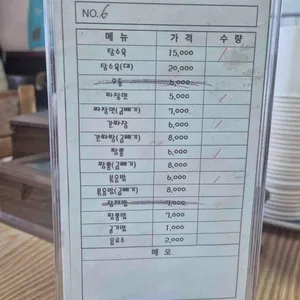 NO. 6
메 뉴 가 격 수 량
탕수육 15,000
탕수육(대) 20,000
우동 6,000
짜장면 5,000
짜장면(곱빼기) 7,000
간짜장 6,000
간짜장(곱빼기) 8,000
짬뽕 6,000
짬뽕(곱빼기) 8,000
볶음밥 6,000
볶음밥(곱빼기) 8,000
잡채밥 7,000
짬뽕밥 7,000
공기밥 1,000
음료수 2,000
메 모